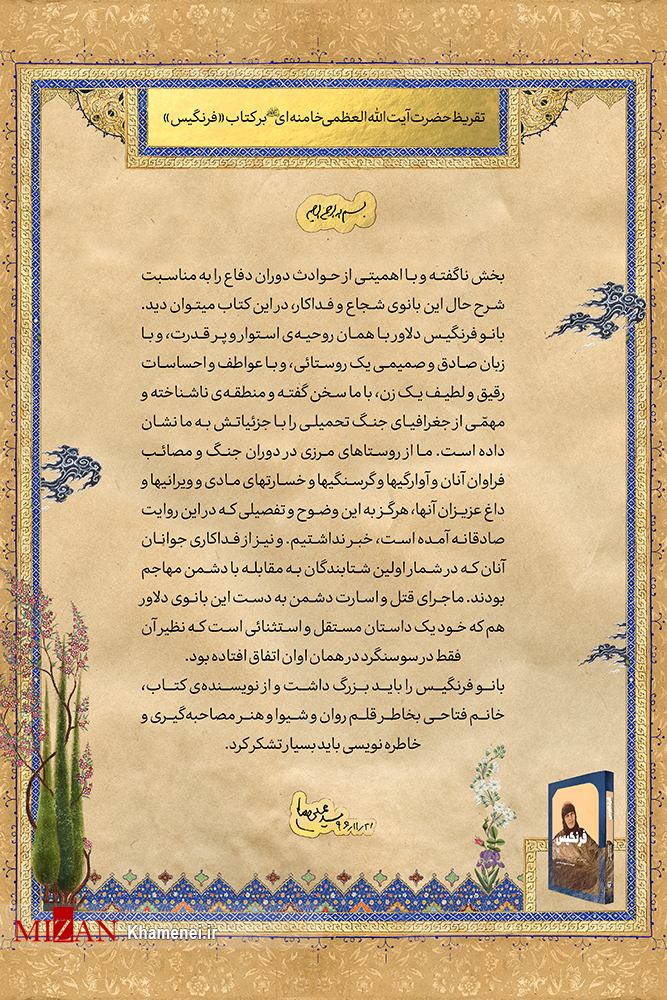 تقریظ حضرت آیت الله العظمی خامنه‌ای بر کتاب «فرنگیس»
بسم الله الرحمن الرحیم
بخش ناگفته و با اهمیتی از حوادث دوران دفاع را به مناسبت
شرح حال این بانوی شجاع و فداکار، در این کتاب میتوان دید.
بانو فرنگیس دلاور با همان روحیه‌ی استوار و پر قدرت، و با
زبان صادق و صمیمی یک روستائی، و با عواطف و احساسات
رقیق و لطیف یک زن، با ما سخن گفته و منطقه‌ی ناشناخته و
مهمّی از جغرافیای جنگ تحمیلی را با جزئیاتش به ما نشان
داده است. ما از روستاهای مرزی در دوران جنگ و مصائب
فراوان آنان و آوارگیها و گرسنگیها و خسارتهای مادی و ویرانیها و
داغ عزیزان آنها، هرگز به این وضوح و تفصیلی که در این روایت
صادقانه آمده است، خبر نداشتیم. و نیز از فداکاری جوانان
آنان که در شمار اولین شتابندگان به مقابله با دشمن مهاجم
بودند. ماجرای قتل و اسارت دشمن به دست این بانوی دلاور
هم که خود یک داستان مستقل و استثنائی است که نظیر آن
فقط در سوسنگرد در همان اوان اتفاق افتاده بود.
بانو فرنگیس را باید بزرگ داشت و از نویسنده‌ی کتاب،
خانم فتاحی بخاطر قلم روان و شیوا و هنر مصاحبه‌گیری و
خاطره نویسی باید بسیار تشکر کرد.
۹۶/۱۱/۲۱
فرنگیس
MIZAN Khamenei.ir